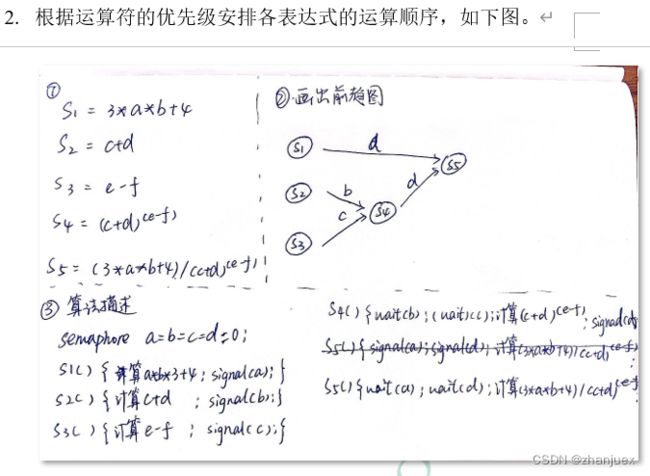 2. 根据运算符的优先级安排各表达式的运算顺序，如下图。
①
S1 = 3*a*b+4
S2 = c+d
S3 = e-f
S4 = (c+d)^(e-f)
S5 = (3*a*b+4)/(c+d)^(e-f)
②画出前趋图
S1 a S5
S2 b S4 d
S3 c
③ 算法描述
semaphore a=b=c=d=0;
S1() { 计算a*b*3+4; signal(a); }
S2() { 计算c+d ; signal(b); }
S3() { 计算e-f ; signal(c); }
S4() { wait(b); wait(c); 计算(c+d)^(e-f); signal(d)
S5() { signal(a); signal(d); 计算(3*a*b+4)/(c+d)^(e-f);
S5() { wait(a); wait(d); 计算(3*a*b+4)/(c+d)^(e-f);
CSDN @zhanjuex